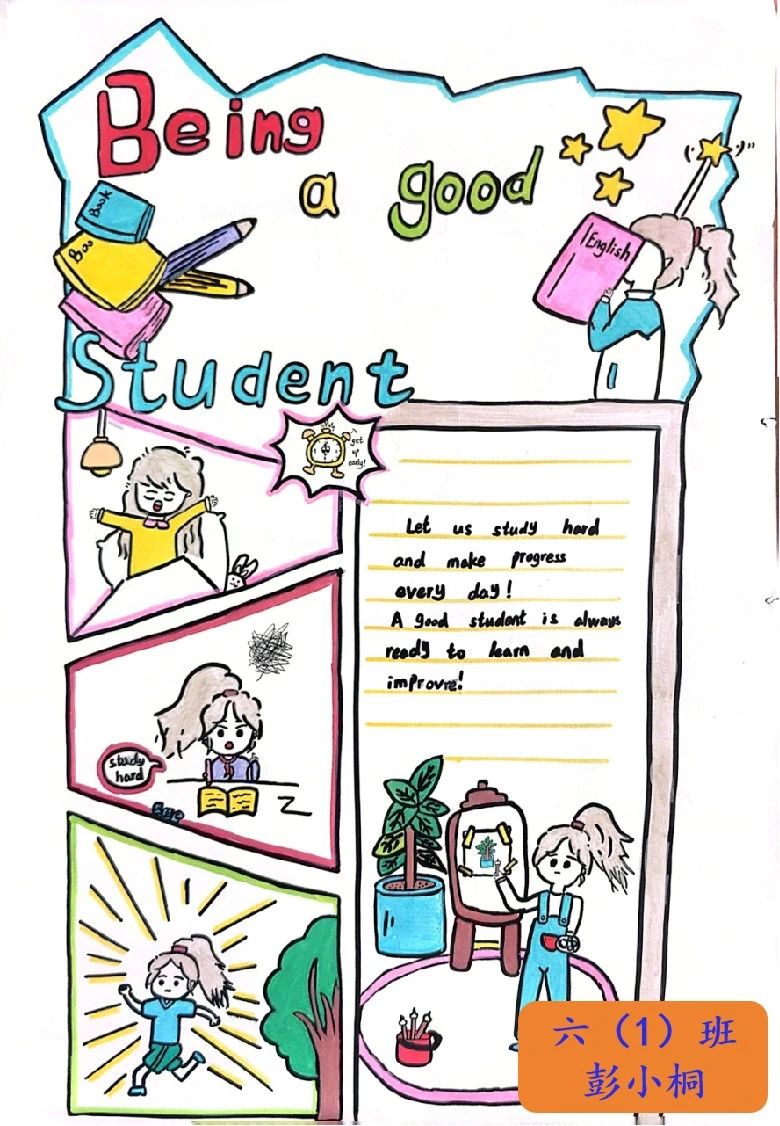 Being
a good
Book
Boo
English
Student
get
up
early!
Let us study hard
and make progress
every day!
A good student is always
ready to learn and
improvre!
study
hard
六（1）班
彭小桐